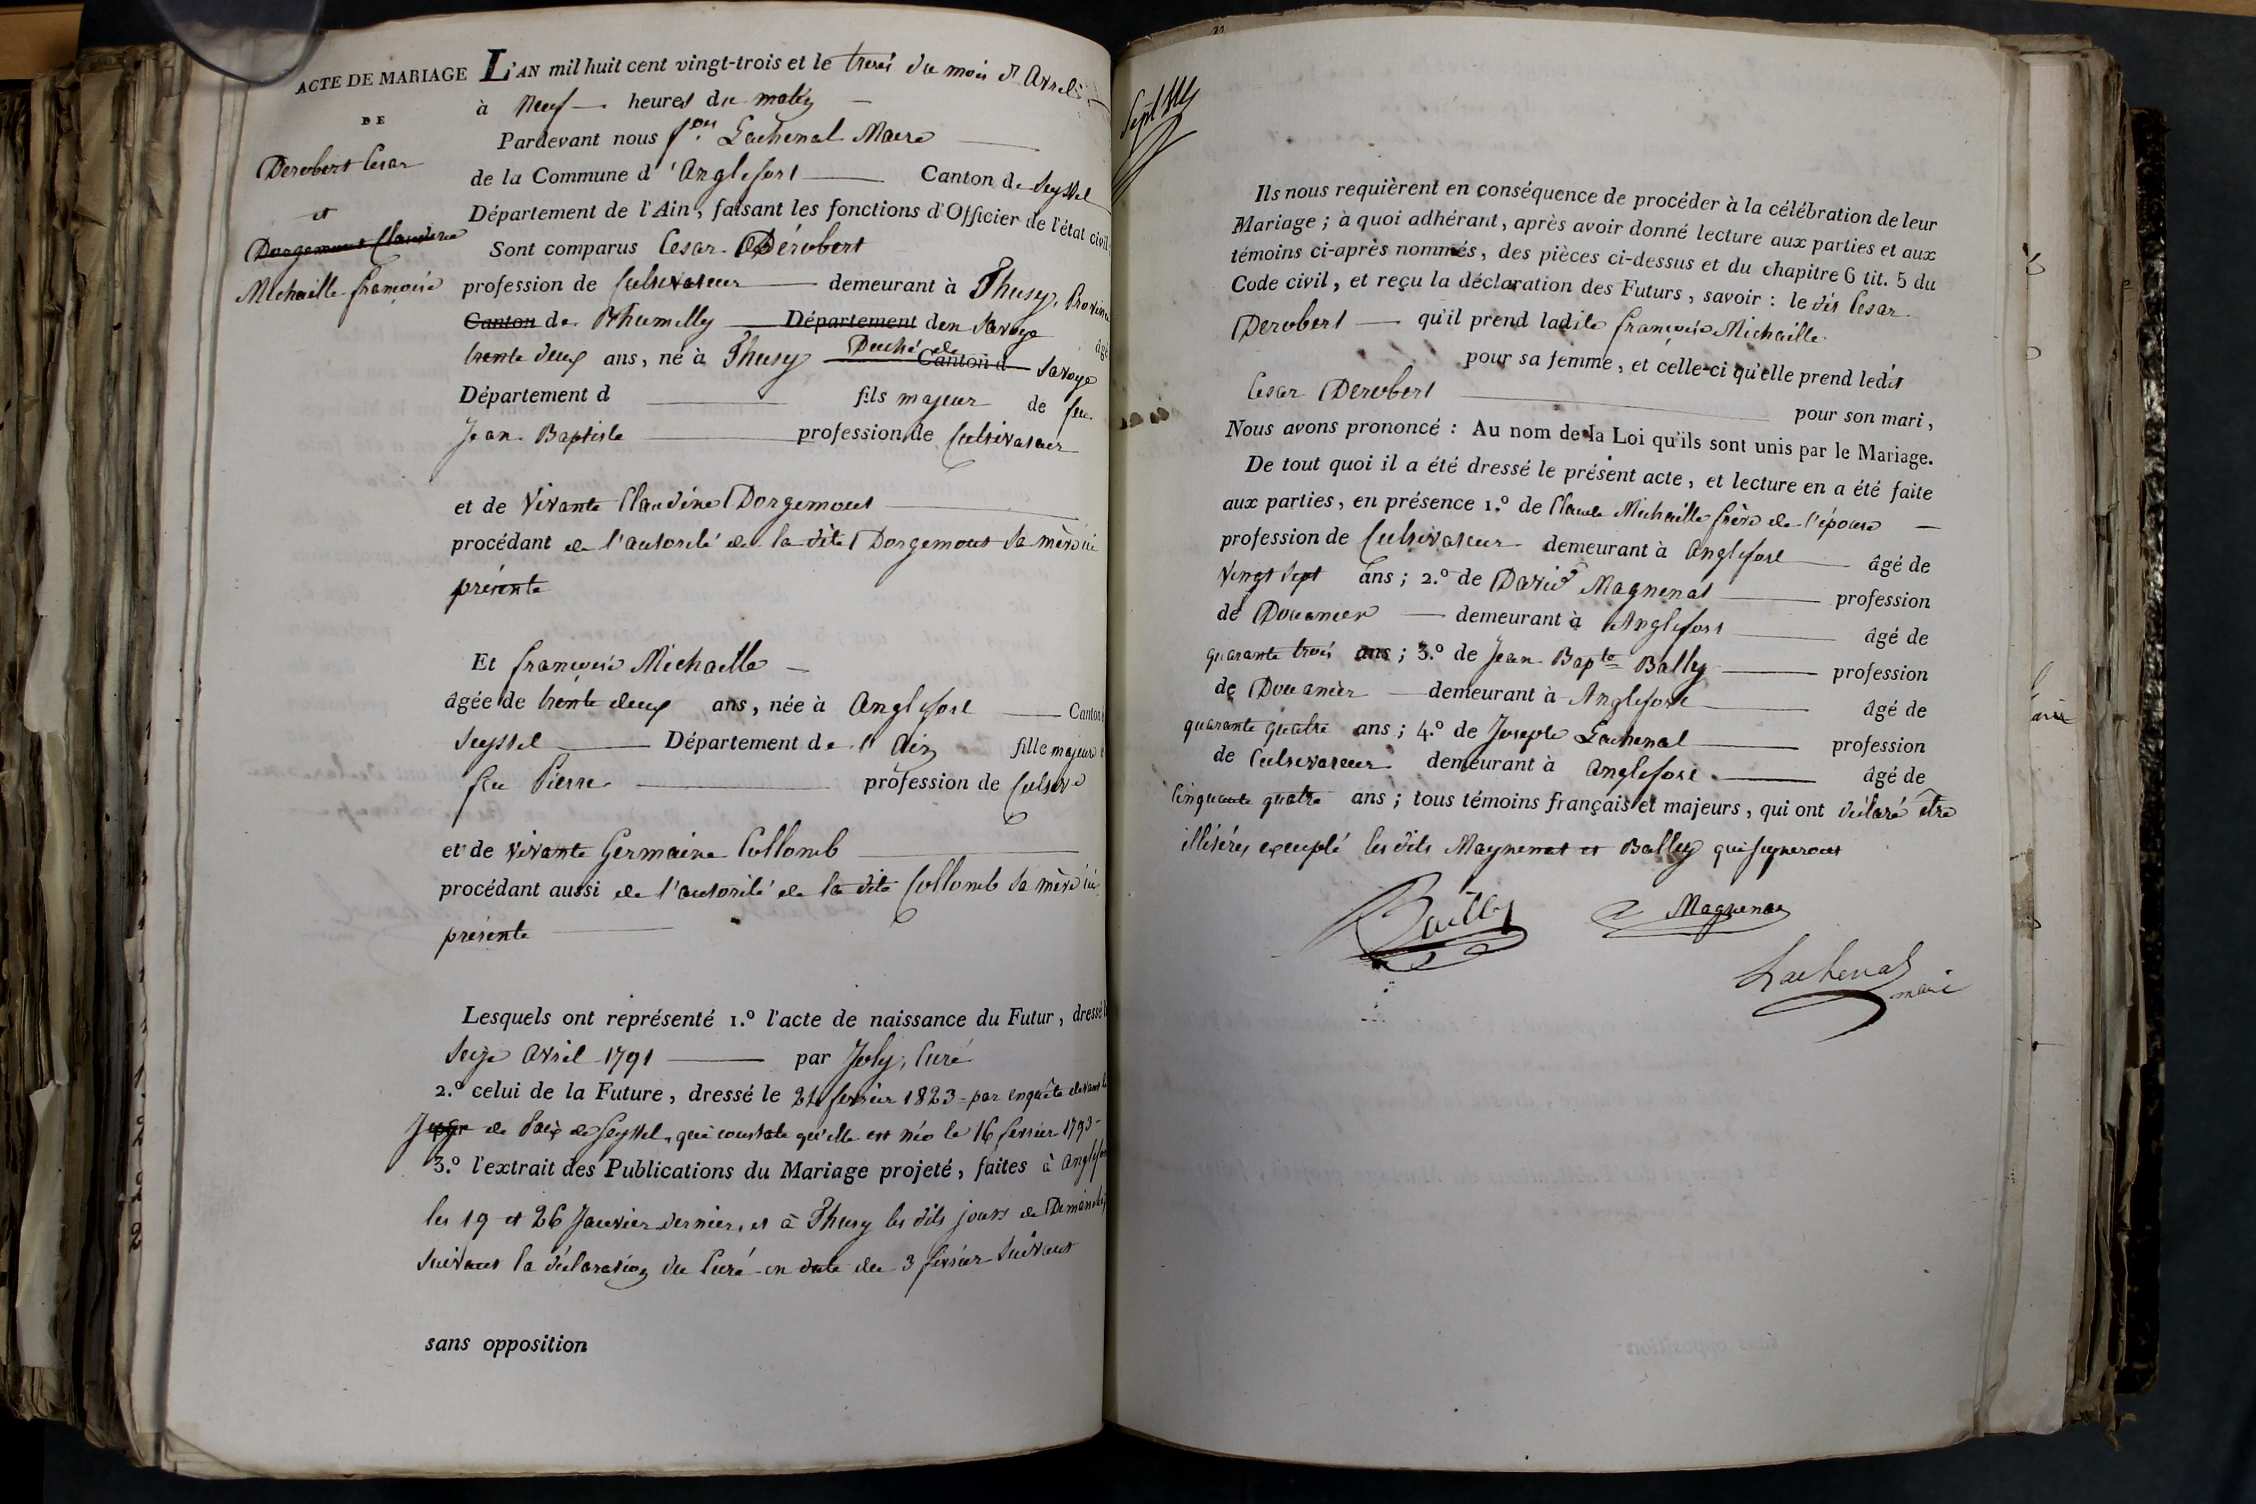 ACTE DE MARIAGE
DE
Derobert Cesar
et
Dorgemout Claudine
Michaille françoise
L'AN mil huit cent vingt-trois et le trois du mois d'Avril
à Neuf heures du matin
Pardevant nous f.ois Lachenal Maire
de la Commune d'Anglefort Canton de Seyssel
Département de l'Ain, faisant les fonctions d'Officier de l'état civil
Sont comparus Cesar Dérobert
profession de Cultivateur demeurant à Thusy, Province
Canton de Rhumilly Département d en Savoye âgé
trente deux ans, né à Thusy Duché de Canton d Savoye
Département d fils majeur de feu
Jean Baptiste profession de Cultivateur
et de vivante Claudine Dorgemout
procédant de l'autorité de la dite Dorgemout sa mère ici
présente
Et françoise Michaille
âgée de trente deux ans, née à Anglefort Canton
Seyssel Département de l'Ain fille majeure
feu Pierre profession de Cultiv
et de vivante Germaine Collomb
procédant aussi de l'autorité de la dite Collomb sa mère ici
présente
Lesquels ont représenté 1.º l'acte de naissance du Futur, dressé le
Seize Avril 1791 par Joly, Curé
2.º celui de la Future, dressé le 21 fevrier 1823 par enquête devant le
Juge de Paix de Seyssel, qui constate qu'elle est née le 16 fevrier 1793
3.º l'extrait des Publications du Mariage projeté, faites à Anglefort
les 19 et 26 Janvier dernier, et à Thusy les dits jours de Dimanche,
suivant la déclaration du Curé en date du 3 fevrier suivant
sans opposition
Ils nous requièrent en conséquence de procéder à la célébration de leur
Mariage; à quoi adhérant, après avoir donné lecture aux parties et aux
témoins ci-après nommés, des pièces ci-dessus et du chapitre 6 tit. 5 du
Code civil, et reçu la déclaration des Futurs, savoir: le dit Cesar
Derobert qu'il prend ladite françoise Michaille
pour sa femme, et celle-ci qu'elle prend ledit
Cesar Derobert pour son mari,
Nous avons prononcé: Au nom de la Loi qu'ils sont unis par le Mariage.
De tout quoi il a été dressé le présent acte, et lecture en a été faite
aux parties, en présence 1.º de Claude Michaille frère de l'épouse
profession de Cultivateur demeurant à Anglefort âgé de
vingt sept ans; 2.º de David Magnenat profession
de Douanier demeurant à Anglefort âgé de
quarante trois ans; 3.º de Jean Bapte Bally profession
de Douanier demeurant à Anglefort âgé de
quarante quatre ans; 4.º de Joseph Lachenal profession
de Cultivateur demeurant à Anglefort âgé de
Cinquante quatre ans; tous témoins français et majeurs, qui ont déclaré être
illitérés excepté les dits Magnenat et Bally qui signeront
Bailly
Magnenat
Lachenal
maire
sans opposition